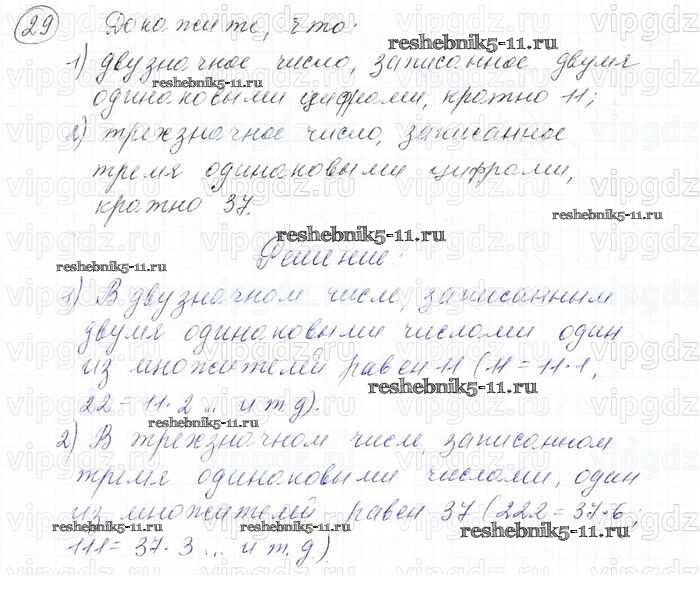 29 Докажите, что:
reshebnik5-11.ru
1) двузначное число, записанное двумя
reshebnik5-11.ru
одинаковыми цифрами, кратно 11;
2) трехзначное число, записанное
тремя одинаковыми цифрами,
кратно 37.
reshebnik5-11.ru
reshebnik5-11.ru
Решение:
reshebnik5-11.ru
1) В двузначном числе, записанным
двумя одинаковыми числами один
из множителей равен 11 (11 = 11·1,
reshebnik5-11.ru
22 = 11·2 ... и т д).
reshebnik5-11.ru
2) В трехзначном числе, записанном
тремя одинаковыми числами, один
из множителей равен 37 (222 = 37·6;
reshebnik5-11.ru reshebnik5-11.ru reshebnik5-11.ru
111 = 37·3 ... и т. д).